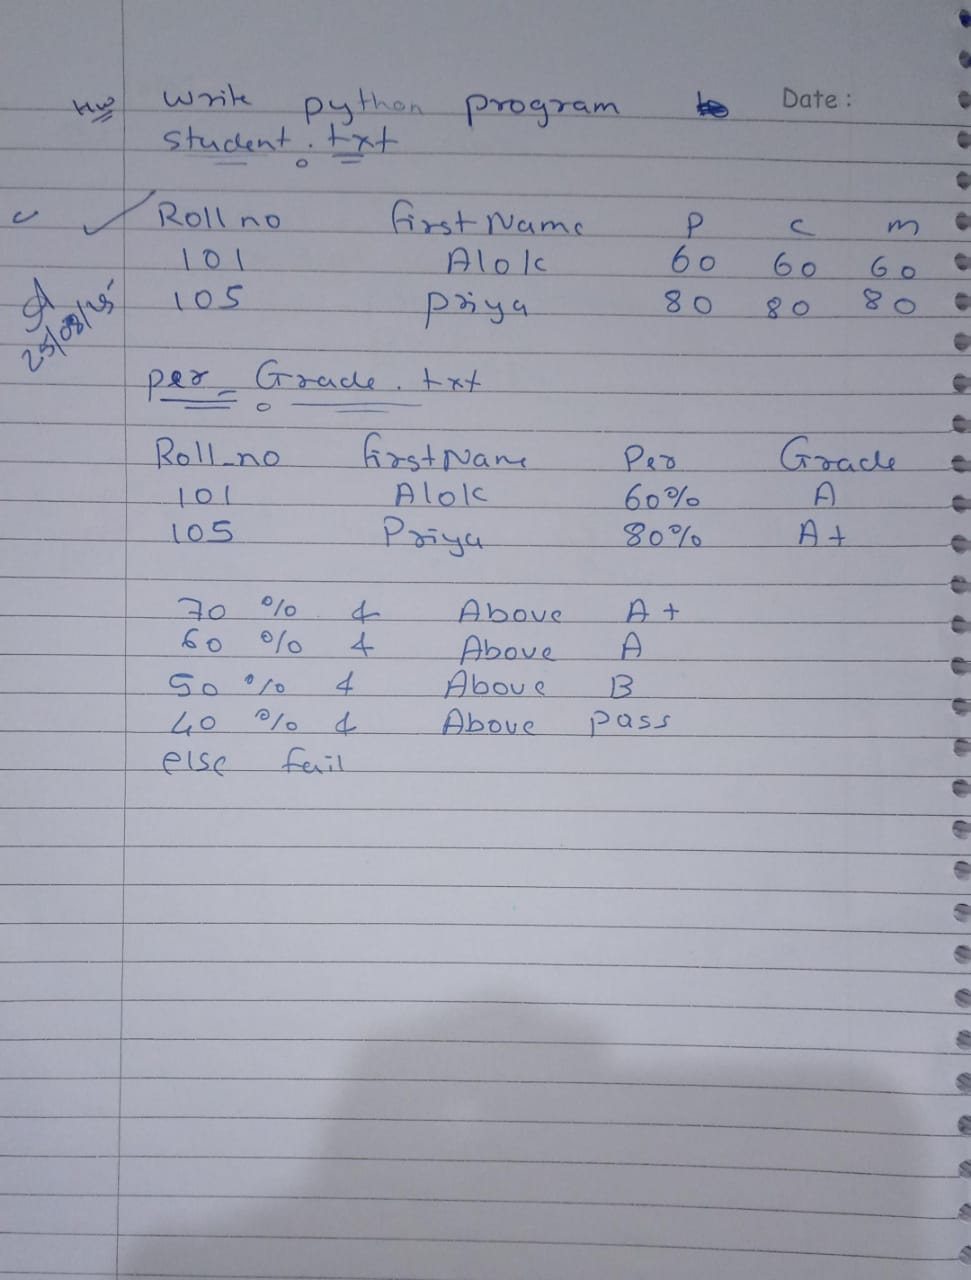 HW write python program Date :
student . txt
Roll no first Name P C M
101 Alok 60 60 60
105 priya 80 80 80
25/08/25
per_Grade . txt
Roll_no first Name Per Grade
101 Alok 60% A
105 Priya 80% A+
70 % & Above A+
60 % & Above A
50 % & Above B
40 % & Above pass
else fail